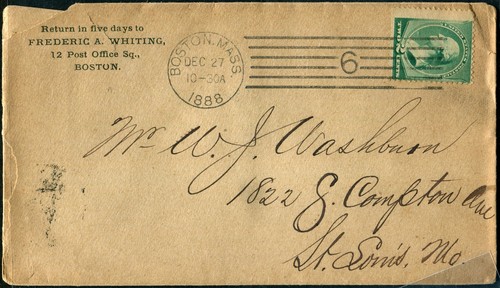 Return in five days to
FREDERIC A. WHITING,
12 Post Office Sq.,
BOSTON.
BOSTON. MASS.
DEC 27
10-30A
1888
6
Mr W. J. Washburn
1822 S. Compton Ave
St. Louis, Mo.